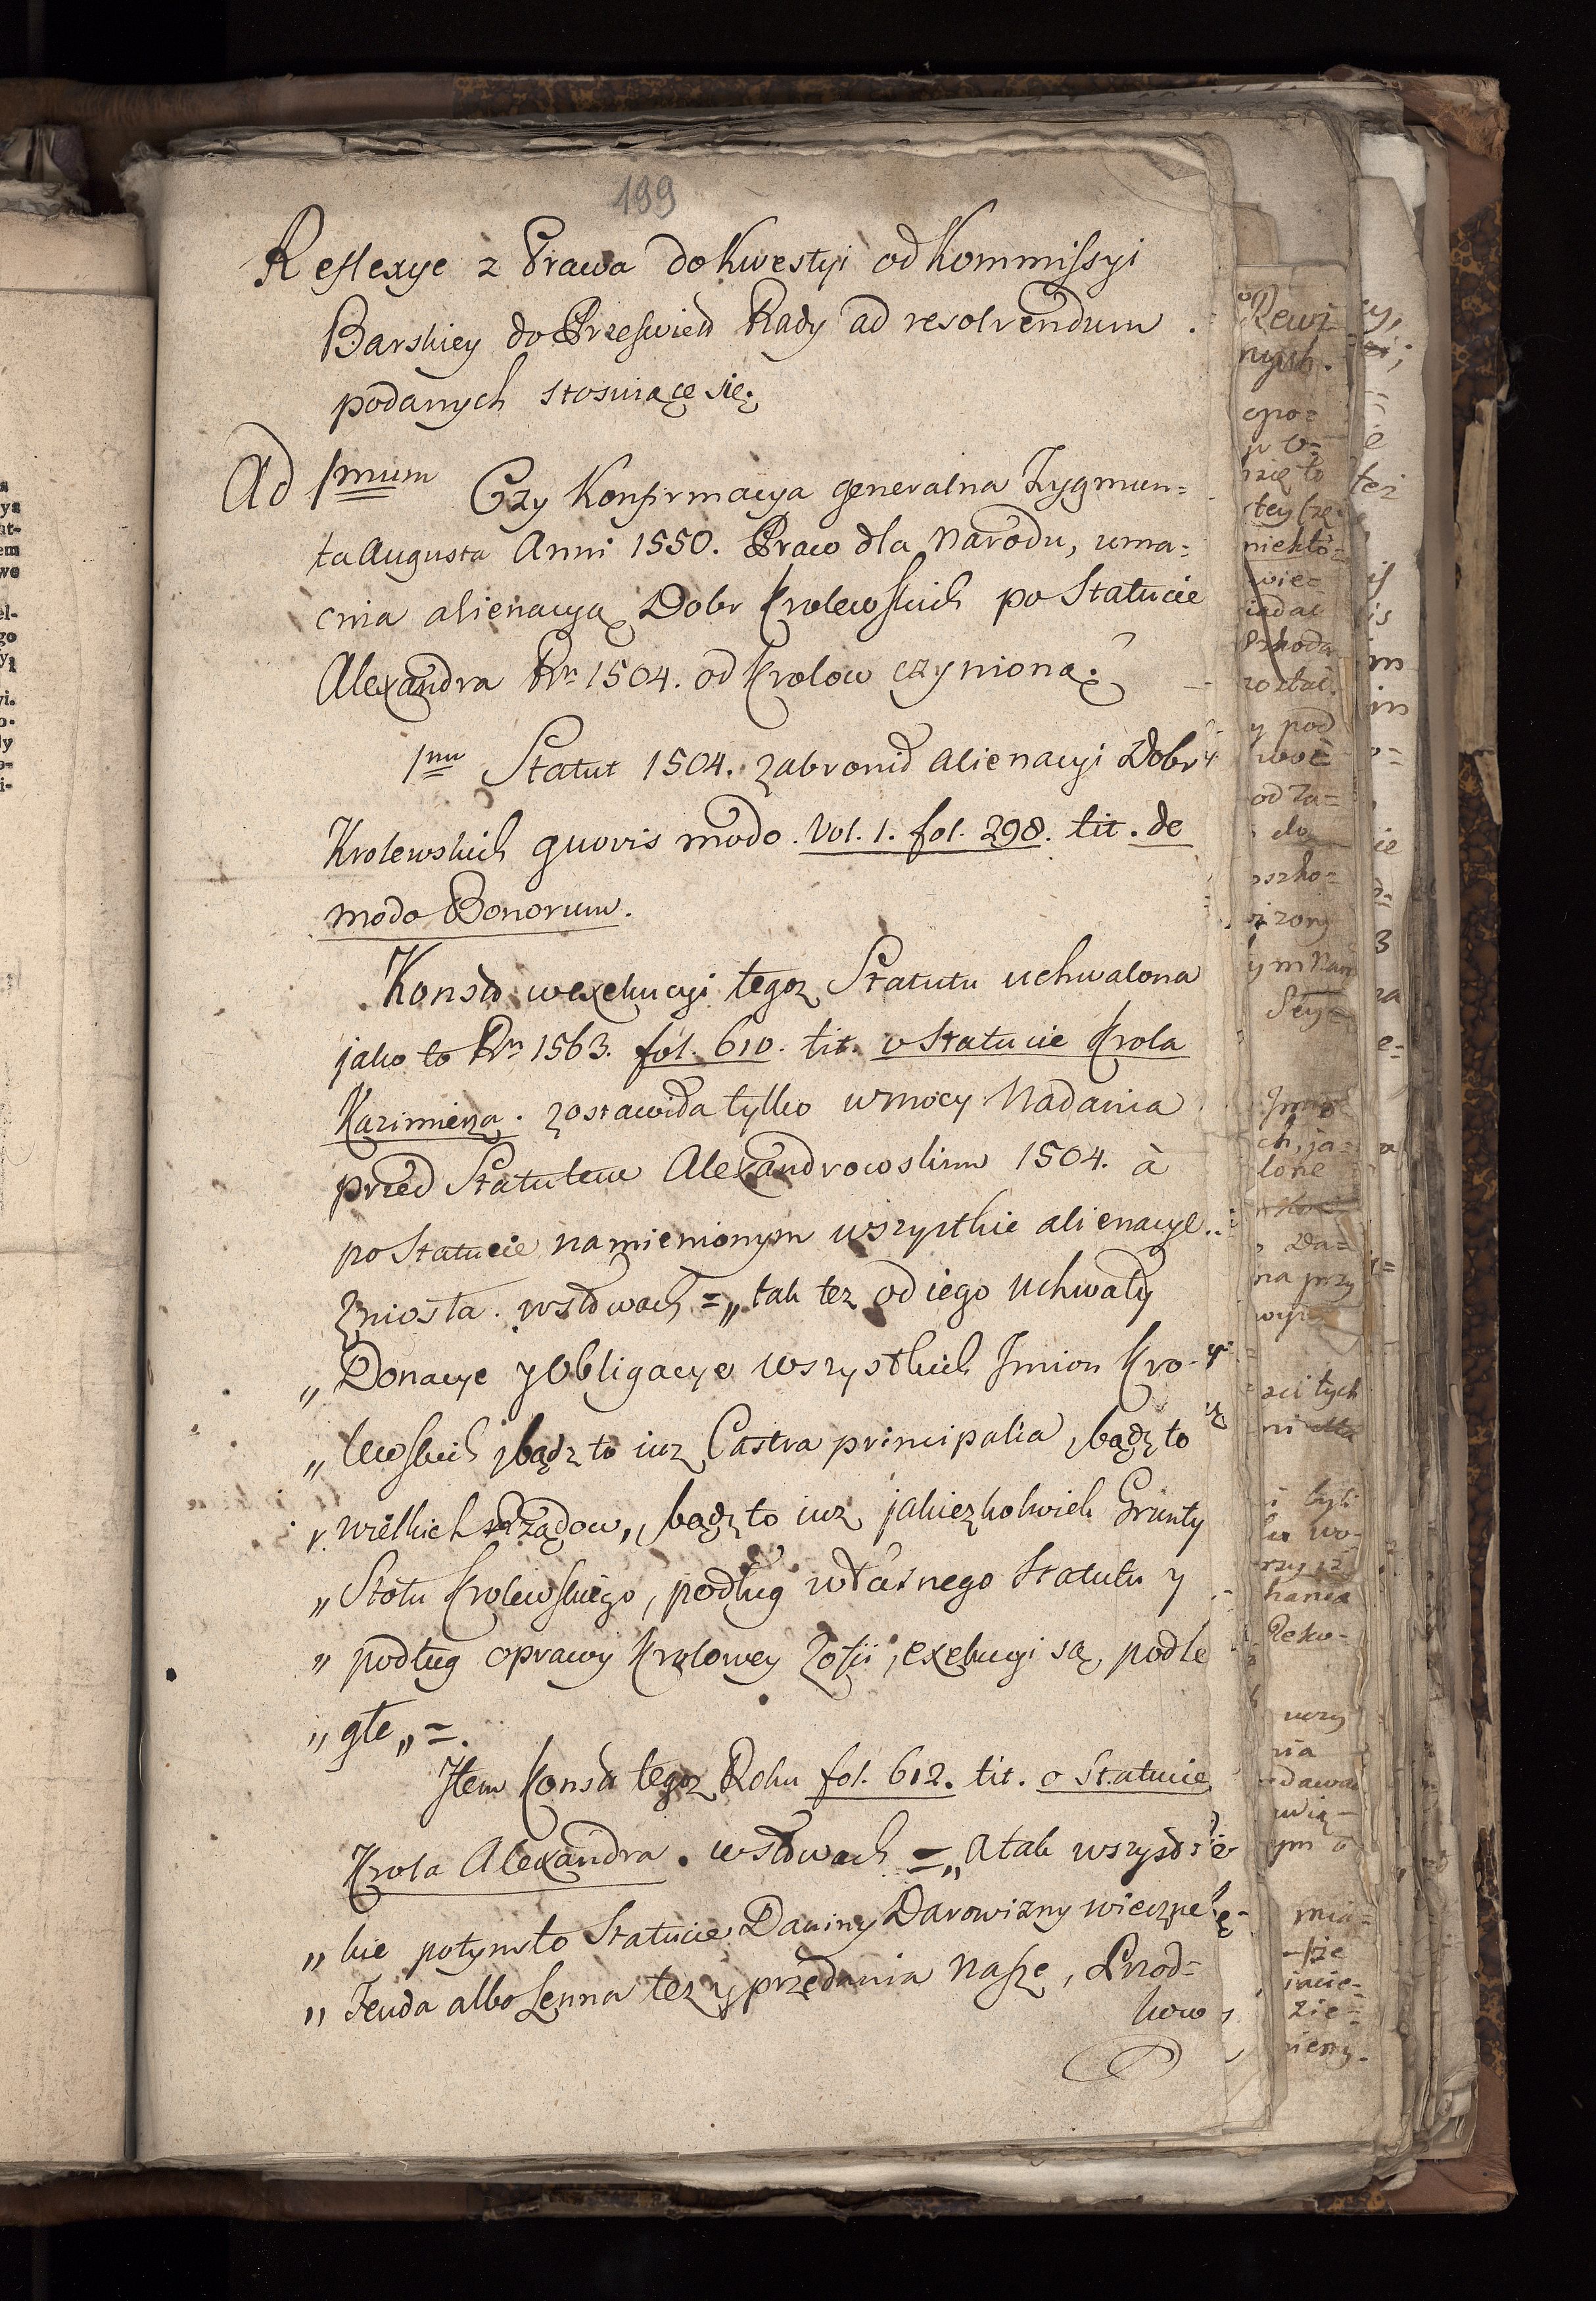 199
Reflexye z Prawa do Kwestyi od Kommissyi
Barskiey do Prześwietł Rady ad resolvendum
podanych stosuiące się.
Ad 1mum Czy Konfirmacya generalna Zygmun=
ta Augusta Anni 1550. Praw dla Narodu, uma=
cnia alienacyą Dobr Krolewskich po Statucie
Alexandra Rn 1504. od Krolow czynioną?
1mu Statut 1504. zabronił alienacyi Dobr
Krolewskich quovis modo. Vol. 1. fol. 298. tit. de
modo Bonorum.
Konstł w exekucyi tegoz Statutu uchwalona
jako to Rn 1563. fol. 610. tit. o Statucie Krola
Kazimierza. zostawiła tylko w mocy Nadania
przed Statutem Alexandrowskim 1504. à
po Statucie namienionym wszystkie alienacye
zniosła. w słowach = „tak tez od iego Uchwały
„Donacye y Obligacye wszystkich Imion Kro-
„lewskich bądz to iuz Castra principalia, bądz to
„wielkich Rządow, bądz to iuz jakiezkolwiek Grunty
„Stołu Krolewskiego, podług własnego Statutu y
„podług oprawy Krolowey Zofii, exekucyi są podle
„głe„ =.
Item Konstł tegoz Roku fol. 612. tit. o Statucie
Krola Alexandra. w słowach = „A tak wszyst
„kie po tym to Statucie Daniny Darowizny wieczne
„Feuda albo Lenna tez y przedania nasze, Przod=
kow
ys
ut-
em
we
el-
go
yi.
o-
ly
i-
Rewi
nych.
opo=
niektó=
wie=
iadać
y pod
od Za=
do
Seyz
ch, ja=
lone
Da=
na przy
ści tych
i byli
hania
Rekw-
nia
ym o
mia=
iacie=
zie=